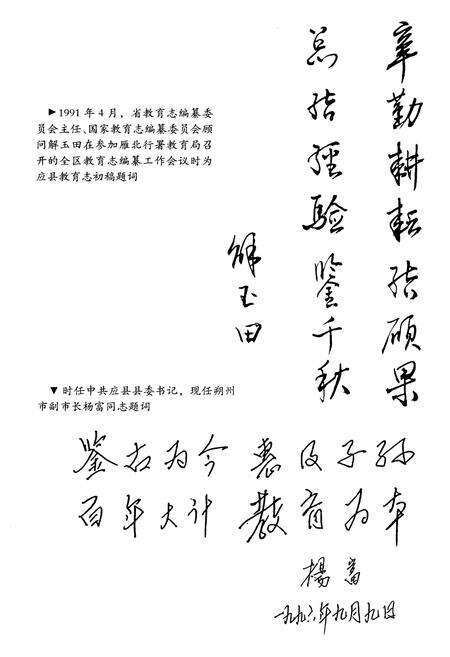 ▶1991年4月，省教育志编纂委
员会主任、国家教育志编纂委员会顾
问解玉田在参加雁北行署教育局召
开的全区教育志编纂工作会议时为
应县教育志初稿题词
辛勤耕耘结硕果
总结经验鉴千秋
解玉田
▼时任中共应县县委书记，现任朔州
市副市长杨富同志题词
鉴古为今 惠及子孙
百年大计 教育为本
楊富
一九九六年九月九日